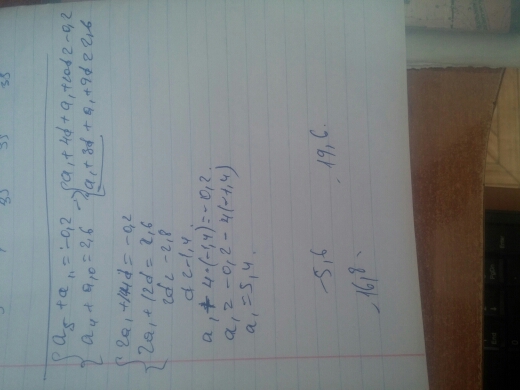 { a₅ + a₁₁ = -0,2
{ a₄ + a₁₀ = 2,6
{ a₁ + 4d + a₁ + 10d = -0,2
{ a₁ + 3d + a₁ + 9d = 2,6
{ 2a₁ + 14d = -0,2
{ 2a₁ + 12d = 2,6
2d = -2,8
d = -1,4
a₁ + 4·(-1,4) = -0,2.
a₁ = -0,2 - 4(-1,4)
a₁ = 5,4.
-5,6
-19,6.
-16,8.